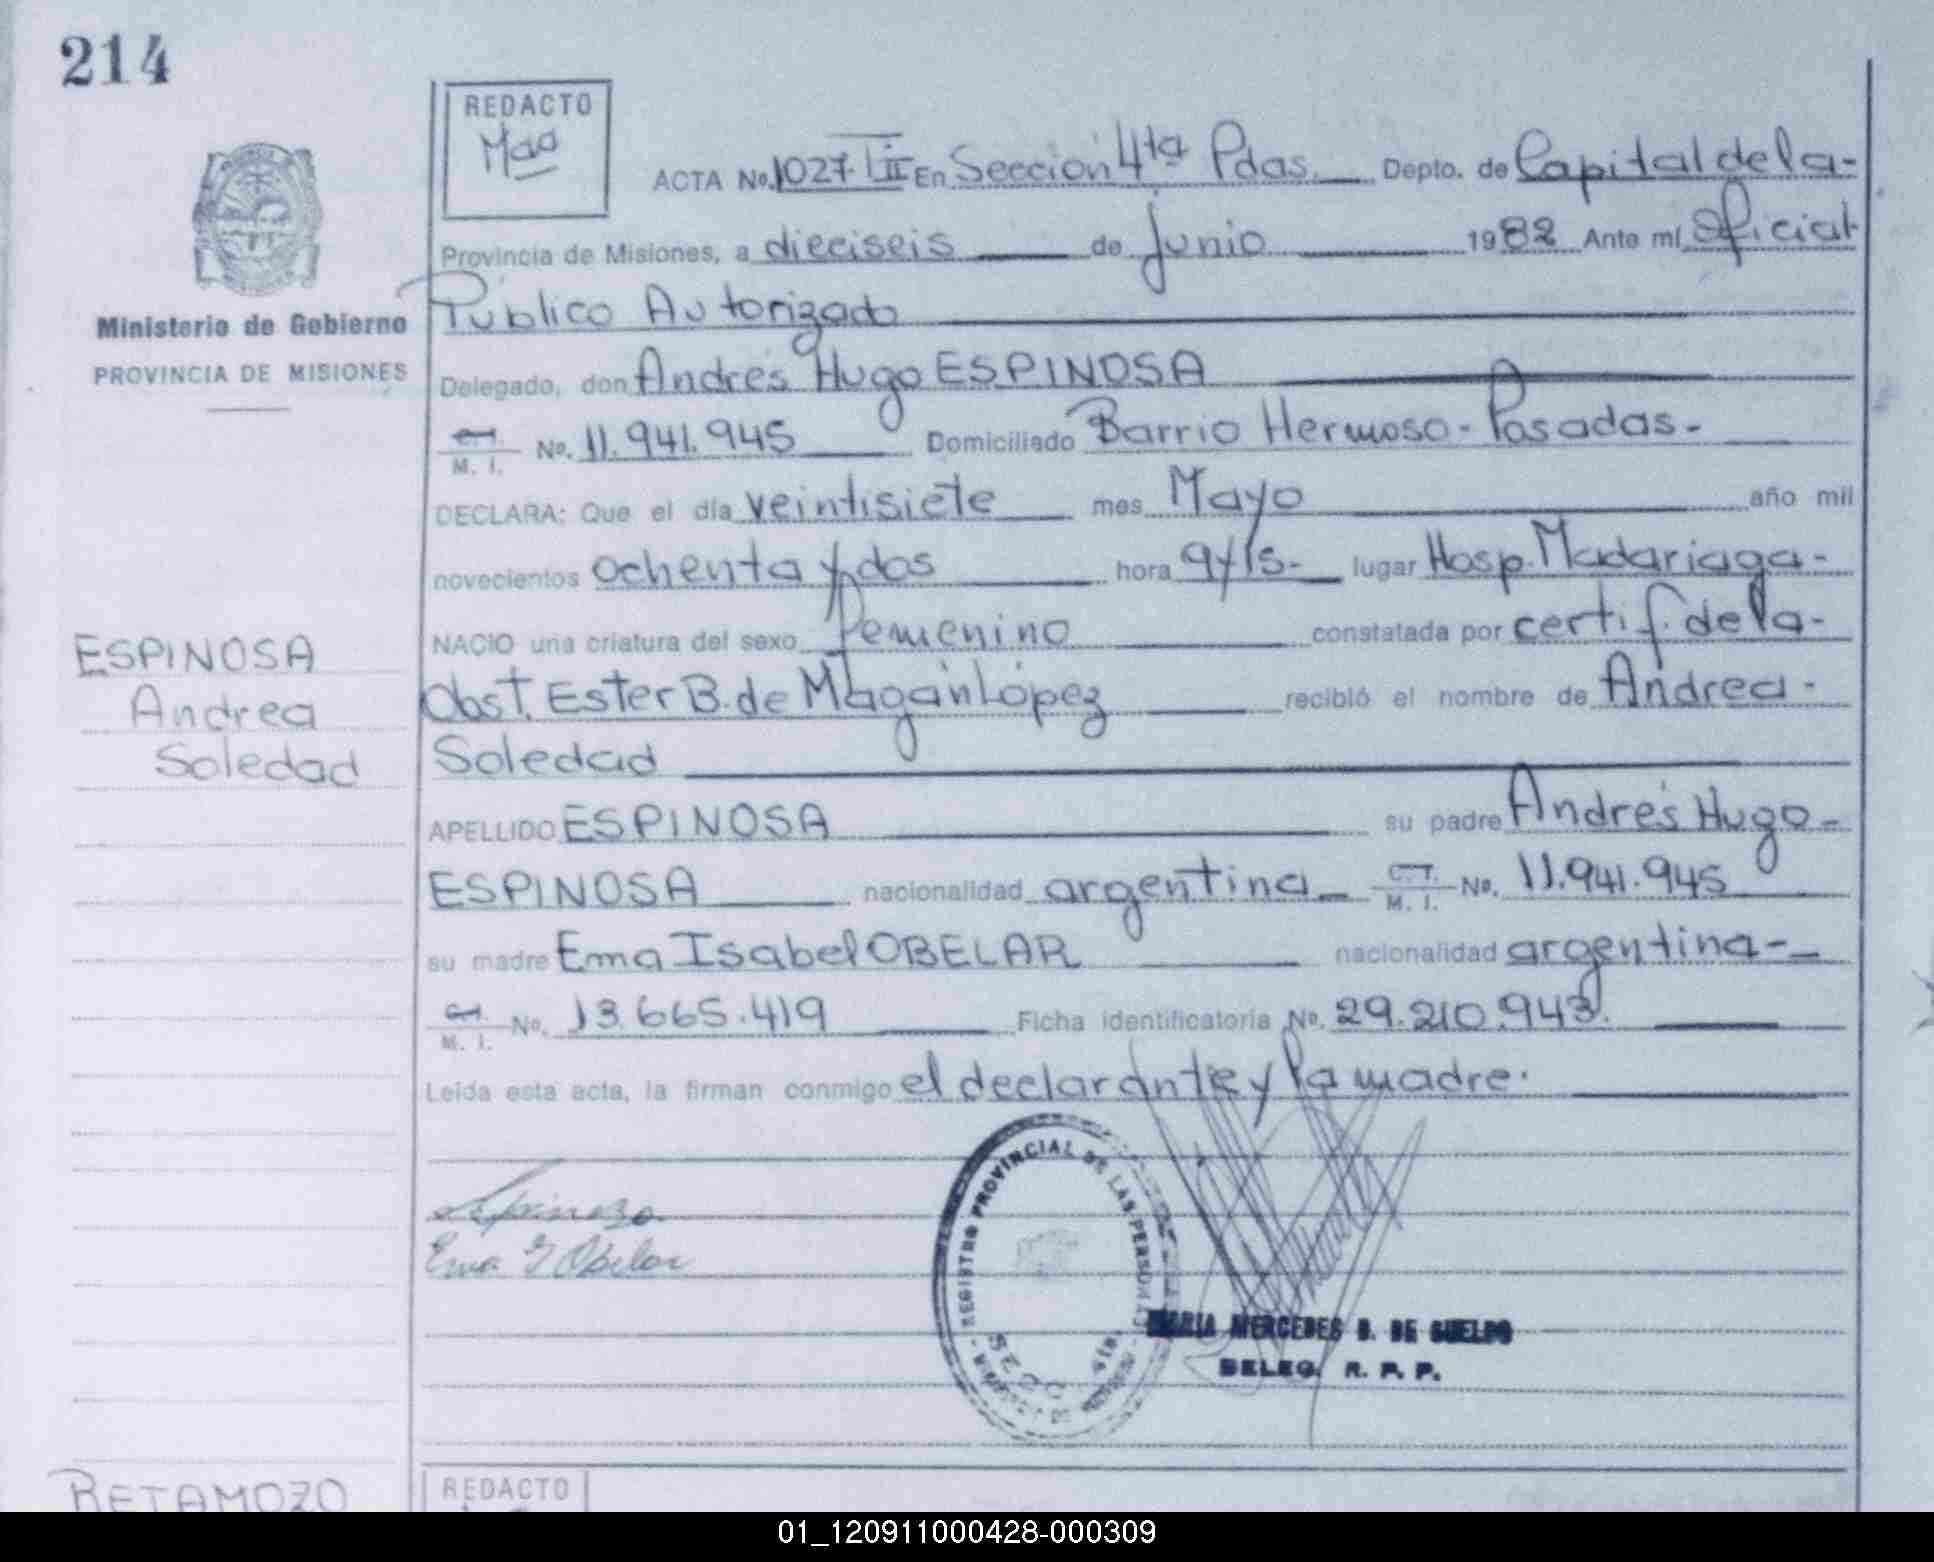 214
REDACTO
Mao
ACTA No. 1027. T II En Sección 4ta Pdas. Depto. de Capital de la-
Provincia de Misiones, a dieciseis de junio 1982 Ante mí Oficial
Público Autorizado
Ministerio de Gobierno
PROVINCIA DE MISIONES
Delegado, don Andrés Hugo ESPINOSA
M. I. No. 11.941.945 Domiciliado Barrio Hermoso - Posadas-
DECLARA: Que el día veintisiete mes Mayo año mil
novecientos ochenta y dos hora 9y15- lugar Hosp. Madariaga-
NACIO una criatura del sexo femenino constatada por certif. de la-
Obst. Ester B. de Magán López recibió el nombre de Andrea-
Soledad
ESPINOSA
Andrea
Soledad
APELLIDO ESPINOSA su padre Andrés Hugo-
ESPINOSA nacionalidad argentina C.I. M. I. No. 11.941.945
su madre Ema Isabel OBELAR nacionalidad argentina-
M. I. No. 13.665.419 Ficha identificatoria No. 29.210.943.
Leida esta acta, la firman conmigo el declarante y la madre.
Espinoza
Ema I Obelar
REGISTRO PROVINCIAL DE LAS PERSONAS
MARIA MERCEDES B. DE SUELDO
DELEG. R. P. P.
RETAMOZO
REDACTO
01_120911000428-000309